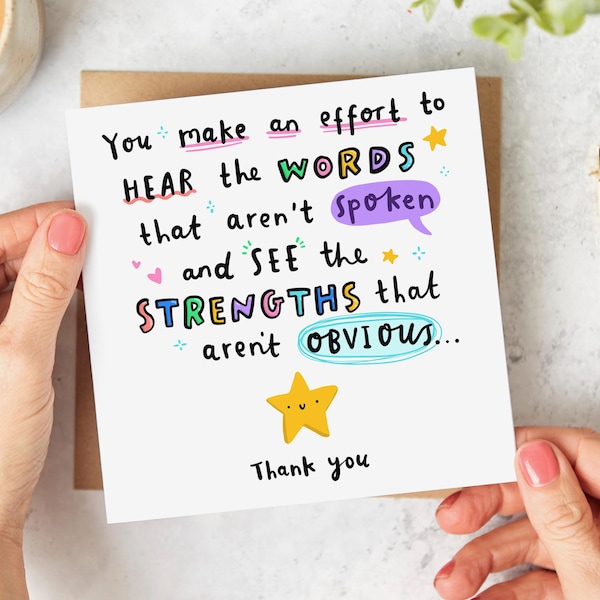 You make an effort to
HEAR the WORDS
that aren't spoken
and SEE the
STRENGTHS that
aren't OBVIOUS...
Thank you